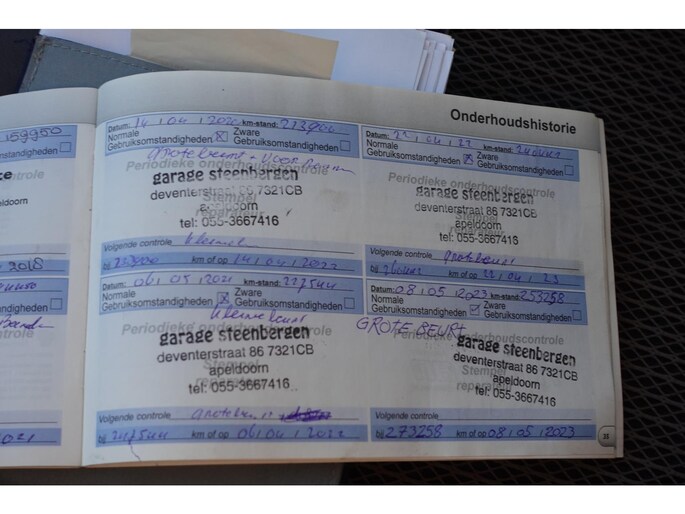 159950
Onderhoudshistorie
Datum: 14 / 04 / 2020 km-stand:
Normale Gebruiksomstandigheden
Zware Gebruiksomstandigheden
Periodieke onderhoudscontrole
garage steenbergen
deventerstraat 86 7321CB
apeldoorn
tel: 055-3667416
Stempel reparateur
Volgende controle
bij km of op 14 / 04 / 2022
Datum: / 04 / 22 km-stand:
Normale Gebruiksomstandigheden
Zware Gebruiksomstandigheden
Periodieke onderhoudscontrole
garage steenbergen
deventerstraat 86 7321CB
apeldoorn
tel: 055-3667416
Stempel
Volgende controle grotebeurt
bij km of op / 04 / 23
Datum: 06 / 05 / 2021 km-stand:
Normale Gebruiksomstandigheden
Zware Gebruiksomstandigheden
Kleine beurt
Periodieke onderhoudscontrole
garage steenbergen
deventerstraat 86 7321CB
apeldoorn
tel: 055-3667416
Stempel
Volgende controle
bij km of op 06 / 04 / 2022
Datum: 08 / 05 / 2023 km-stand: 253258
Normale Gebruiksomstandigheden
Zware Gebruiksomstandigheden
GROTE BEURT
Periodieke onderhoudscontrole
garage steenbergen
deventerstraat 86 7321CB
apeldoorn
tel: 055-3667416
Stempel
Volgende controle
bij 273258 km of op 08 / 05 / 2023
35